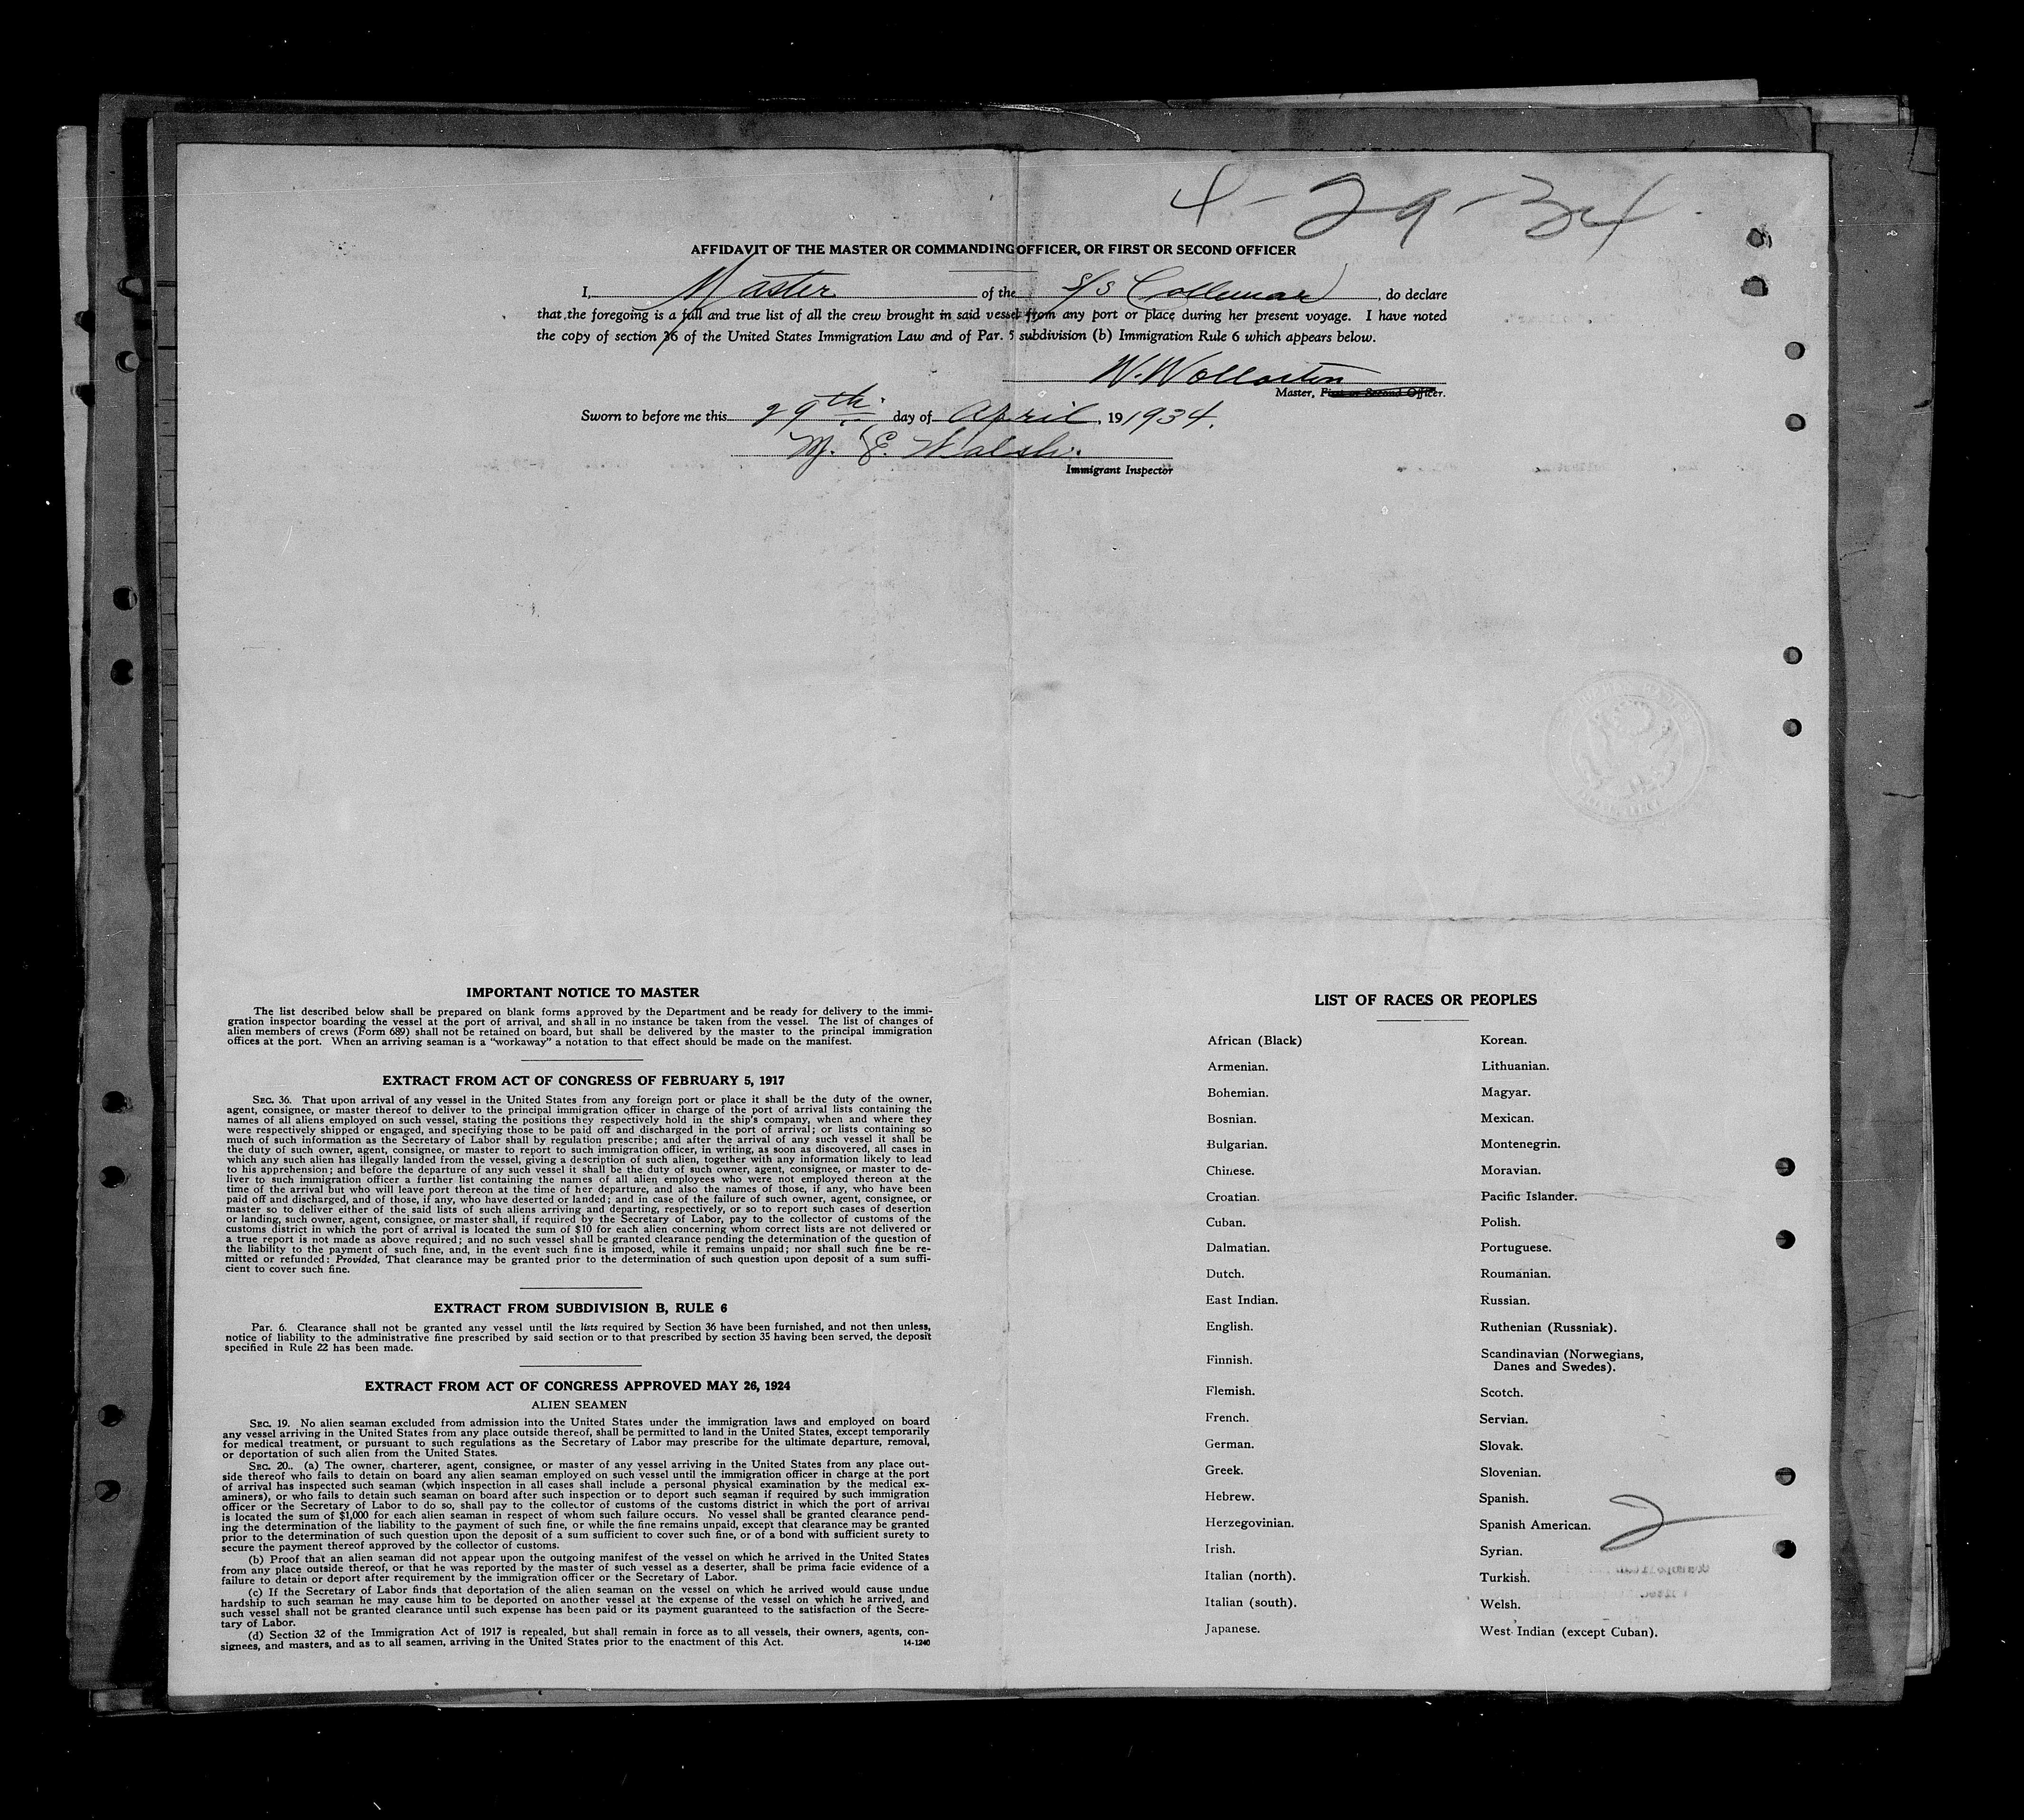 4-29-34
AFFIDAVIT OF THE MASTER OR COMMANDING OFFICER, OR FIRST OR SECOND OFFICER
I, Master of the S/S Collamer, do declare
that the foregoing is a full and true list of all the crew brought in said vessel from any port or place during her present voyage. I have noted
the copy of section 36 of the United States Immigration Law and of Par. 5 subdivision (b) Immigration Rule 6 which appears below.
W. Wollaston
Master, First or Second Officer.
Sworn to before me this 29th day of April, 19 1934.
M. E. Walsh.
Immigrant Inspector
IMPORTANT NOTICE TO MASTER
The list described below shall be prepared on blank forms approved by the Department and be ready for delivery to the immi-
gration inspector boarding the vessel at the port of arrival, and shall in no instance be taken from the vessel. The list of changes of
alien members of crews (Form 689) shall not be retained on board, but shall be delivered by the master to the principal immigration
offices at the port. When an arriving seaman is a "workaway" a notation to that effect should be made on the manifest.
EXTRACT FROM ACT OF CONGRESS OF FEBRUARY 5, 1917
SEC. 36. That upon arrival of any vessel in the United States from any foreign port or place it shall be the duty of the owner,
agent, consignee, or master thereof to deliver to the principal immigration officer in charge of the port of arrival lists containing the
names of all aliens employed on such vessel, stating the positions they respectively hold in the ship's company, when and where they
were respectively shipped or engaged, and specifying those to be paid off and discharged in the port of arrival; or lists containing so
much of such information as the Secretary of Labor shall by regulation prescribe; and after the arrival of any such vessel it shall be
the duty of such owner, agent, consignee, or master to report to such immigration officer, in writing, as soon as discovered, all cases in
which any such alien has illegally landed from the vessel, giving a description of such alien, together with any information likely to lead
to his apprehension; and before the departure of any such vessel it shall be the duty of such owner, agent, consignee, or master to de-
liver to such immigration officer a further list containing the names of all alien employees who were not employed thereon at the
time of the arrival but who will leave port thereon at the time of her departure, and also the names of those, if any, who have been
paid off and discharged, and of those, if any, who have deserted or landed; and in case of the failure of such owner, agent, consignee, or
master so to deliver either of the said lists of such aliens arriving and departing, respectively, or so to report such cases of desertion
or landing, such owner, agent, consignee, or master shall, if required by the Secretary of Labor, pay to the collector of customs of the
customs district in which the port of arrival is located the sum of $10 for each alien concerning whom correct lists are not delivered or
a true report is not made as above required; and no such vessel shall be granted clearance pending the determination of the question of
the liability to the payment of such fine, and, in the event such fine is imposed, while it remains unpaid; nor shall such fine be re-
mitted or refunded: Provided, That clearance may be granted prior to the determination of such question upon deposit of a sum suffi-
cient to cover such fine.
EXTRACT FROM SUBDIVISION B, RULE 6
Par. 6. Clearance shall not be granted any vessel until the lists required by Section 36 have been furnished, and not then unless,
notice of liability to the administrative fine prescribed by said section or to that prescribed by section 35 having been served, the deposit
specified in Rule 22 has been made.
EXTRACT FROM ACT OF CONGRESS APPROVED MAY 26, 1924
ALIEN SEAMEN
SEC. 19. No alien seaman excluded from admission into the United States under the immigration laws and employed on board
any vessel arriving in the United States from any place outside thereof, shall be permitted to land in the United States, except temporarily
for medical treatment, or pursuant to such regulations as the Secretary of Labor may prescribe for the ultimate departure, removal,
or deportation of such alien from the United States.
SEC. 20.. (a) The owner, charterer, agent, consignee, or master of any vessel arriving in the United States from any place out-
side thereof who fails to detain on board any alien seaman employed on such vessel until the immigration officer in charge at the port
of arrival has inspected such seaman (which inspection in all cases shall include a personal physical examination by the medical ex-
aminers), or who fails to detain such seaman on board after such inspection or to deport such seaman if required by such immigration
officer or the Secretary of Labor to do so, shall pay to the collector of customs of the customs district in which the port of arrival
is located the sum of $1,000 for each alien seaman in respect of whom such failure occurs. No vessel shall be granted clearance pend-
ing the determination of the liability to the payment of such fine, or while the fine remains unpaid, except that clearance may be granted
prior to the determination of such question upon the deposit of a sum sufficient to cover such fine, or of a bond with sufficient surety to
secure the payment thereof approved by the collector of customs.
(b) Proof that an alien seaman did not appear upon the outgoing manifest of the vessel on which he arrived in the United States
from any place outside thereof, or that he was reported by the master of such vessel as a deserter, shall be prima facie evidence of a
failure to detain or deport after requirement by the immigration officer or the Secretary of Labor.
(c) If the Secretary of Labor finds that deportation of the alien seaman on the vessel on which he arrived would cause undue
hardship to such seaman he may cause him to be deported on another vessel at the expense of the vessel on which he arrived, and
such vessel shall not be granted clearance until such expense has been paid or its payment guaranteed to the satisfaction of the Secre-
tary of Labor.
(d) Section 32 of the Immigration Act of 1917 is repealed, but shall remain in force as to all vessels, their owners, agents, con-
signees, and masters, and as to all seamen, arriving in the United States prior to the enactment of this Act.
14-1240
LIST OF RACES OR PEOPLES
African (Black)
Armenian.
Bohemian.
Bosnian.
Bulgarian.
Chinese.
Croatian.
Cuban.
Dalmatian.
Dutch.
East Indian.
English.
Finnish.
Flemish.
French.
German.
Greek.
Hebrew.
Herzegovinian.
Irish.
Italian (north).
Italian (south).
Japanese.
Korean.
Lithuanian.
Magyar.
Mexican.
Montenegrin.
Moravian.
Pacific Islander.
Polish.
Portuguese.
Roumanian.
Russian.
Ruthenian (Russniak).
Scandinavian (Norwegians,
Danes and Swedes).
Scotch.
Servian.
Slovak.
Slovenian.
Spanish.
Spanish American.
Syrian.
Turkish.
Welsh.
West Indian (except Cuban).
2